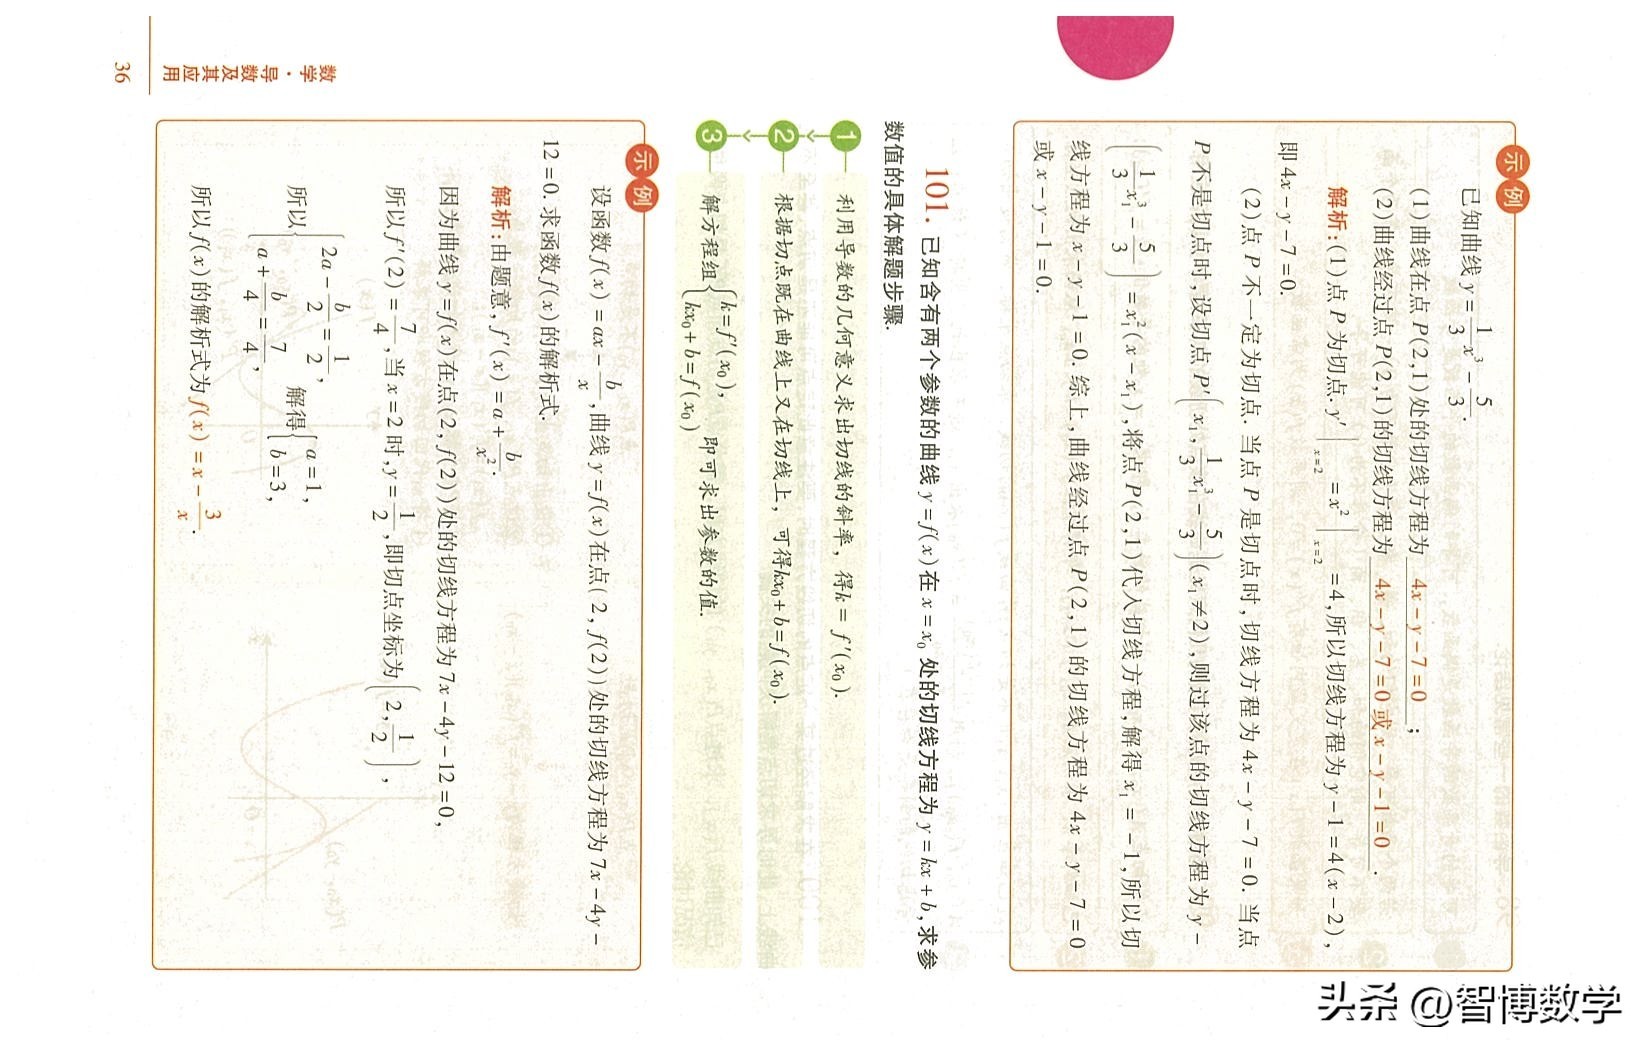 示例
已知曲线 y=1/3x³-5/3.
(1)曲线在点 P(2,1)处的切线方程为 4x-y-7=0 ;
(2)曲线经过点 P(2,1)的切线方程为 4x-y-7=0 或 x-y-1=0 .
解析:(1)点 P 为切点. y′|x=2 =x²|x=2 =4,所以切线方程为 y-1=4(x-2),
即 4x-y-7=0.
(2)点 P 不一定为切点. 当点 P 是切点时,切线方程为 4x-y-7=0. 当点
P 不是切点时,设切点 P′(x₁,1/3x₁³-5/3)(x₁≠2),则过该点的切线方程为 y-
(1/3x₁³-5/3)=x₁²(x-x₁),将点 P(2,1)代入切线方程,解得 x₁=-1,所以切
线方程为 x-y-1=0. 综上,曲线经过点 P(2,1)的切线方程为 4x-y-7=0
或 x-y-1=0.
101. 已知含有两个参数的曲线 y=f(x)在 x=x₀ 处的切线方程为 y=kx+b,求参
数值的具体解题步骤.
1 利用导数的几何意义求出切线的斜率, 得k= f′(x₀).
2 根据切点既在曲线上又在切线上, 可得kx₀+b=f(x₀).
3 解方程组{k=f′(x₀), kx₀+b=f(x₀) 即可求出参数的值.
示例
设函数 f(x)=ax-b/x,曲线 y=f(x)在点(2,f(2))处的切线方程为 7x-4y-
12=0. 求函数 f(x)的解析式.
解析:由题意, f′(x)=a+b/x².
因为曲线 y=f(x)在点(2,f(2))处的切线方程为 7x-4y-12=0,
所以 f′(2)=7/4,当 x=2 时,y=1/2,即切点坐标为(2,1/2),
所以{2a-b/2=1/2, a+b/4=7/4, 解得{a=1, b=3,
所以 f(x)的解析式为 f(x)=x-3/x.
36
数学·导数及其应用
头条 @智博数学